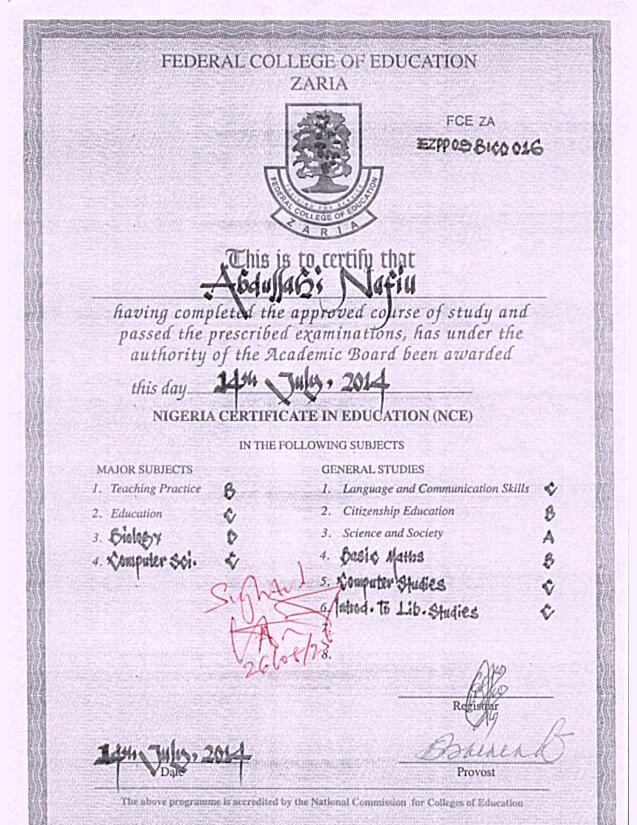 FEDERAL COLLEGE OF EDUCATION
ZARIA
FCE ZA
EZPP09BICO016
FEDERAL COLLEGE OF EDUCATION
ZARIA
This is to certify that
Abdullahi Nafiu
having completed the approved course of study and
passed the prescribed examinations, has under the
authority of the Academic Board been awarded
this day 14th July, 2014
NIGERIA CERTIFICATE IN EDUCATION (NCE)
IN THE FOLLOWING SUBJECTS
MAJOR SUBJECTS
1. Teaching Practice B
2. Education C
3. Biology D
4. Computer Sci. C
GENERAL STUDIES
1. Language and Communication Skills C
2. Citizenship Education B
3. Science and Society A
4. Basic Maths B
5. Computer Studies C
6. Introd. To Lib. Studies C
7.
8.
Sighted
Registrar
14th July, 2014
Date
Provost
The above programme is accredited by the National Commission for Colleges of Education